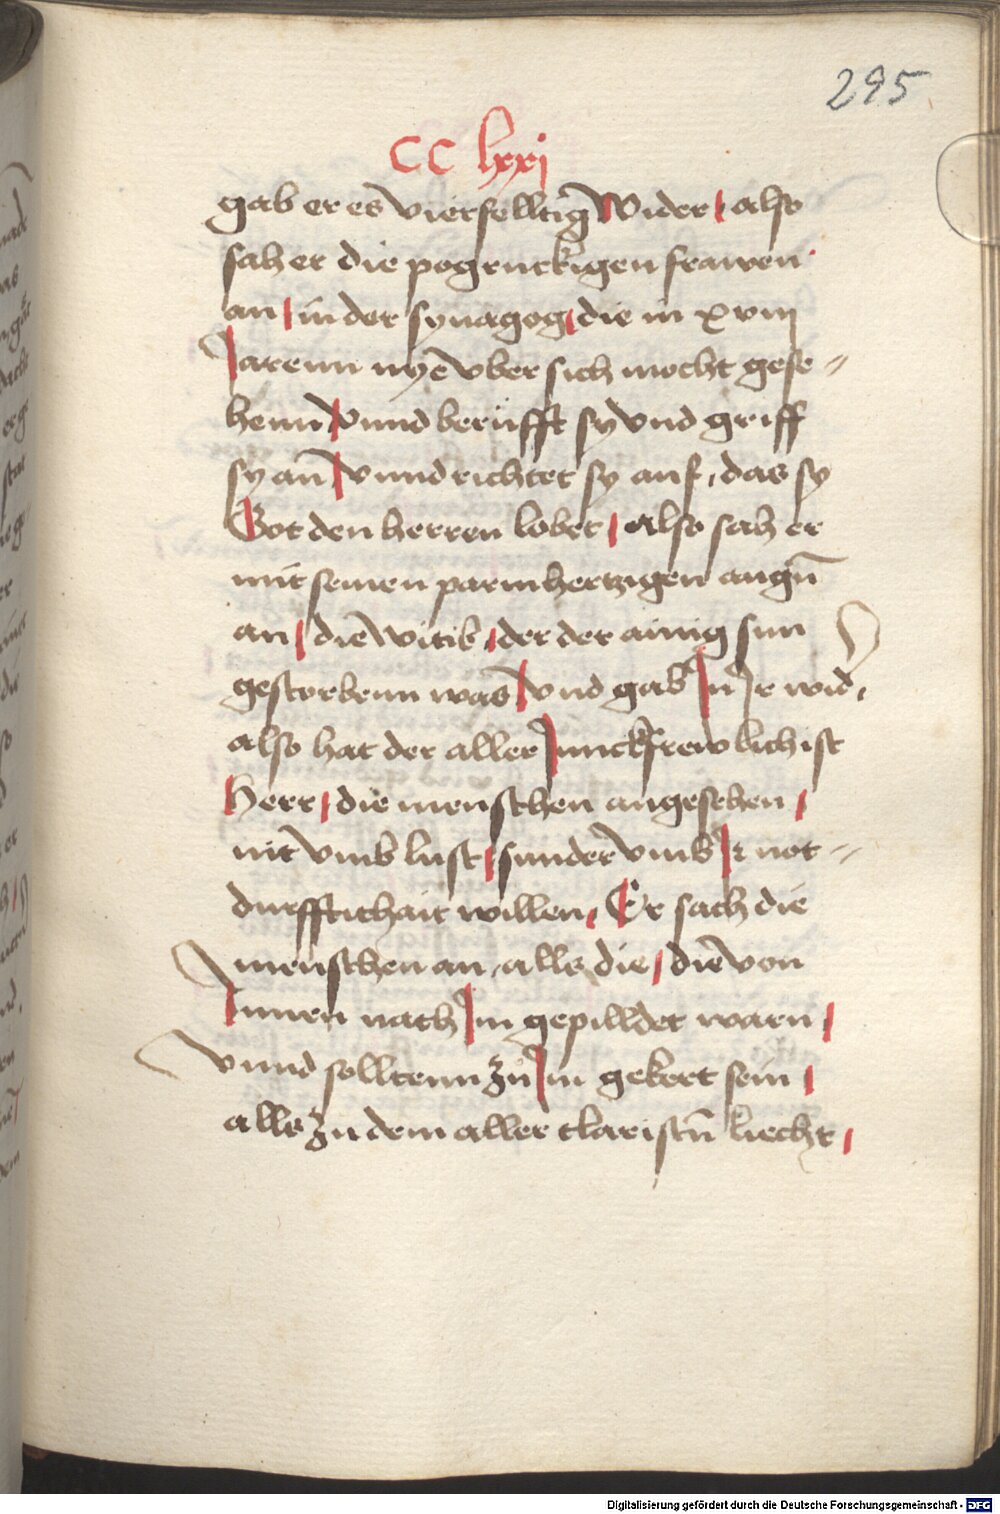 295
CC lxxj
gab er es vierfelltig Wider / also
sah er die pogruckigen frawen
an / in der synagog / die in xviij
Jarenn nye vber sich mocht gese-
henn / Vnnd berüfft sy vnd griff
sy an / vnnd richtet sy auf, das sy
Got den herren lobet / also sah er
mit seinen parmhertzigen augn̄
an / die witib / der der ainig sun
gestorbenn was / vnd gab Jn Jr wid͛
also hat der aller Junckfrewlichist
Herr / die menschen angesehen /
nit vmb lust / sunder vmb Ir not-
durfftichait willen / Er sach die
menschen an, alls die / die von
Jnnen nach Jm gepilldet warn /
vnnd solltenn zů Jm gekert sein /
alls zu dem aller claristn̄ liecht /
Digitalisierung gefördert durch die Deutsche Forschungsgemeinschaft - DFG